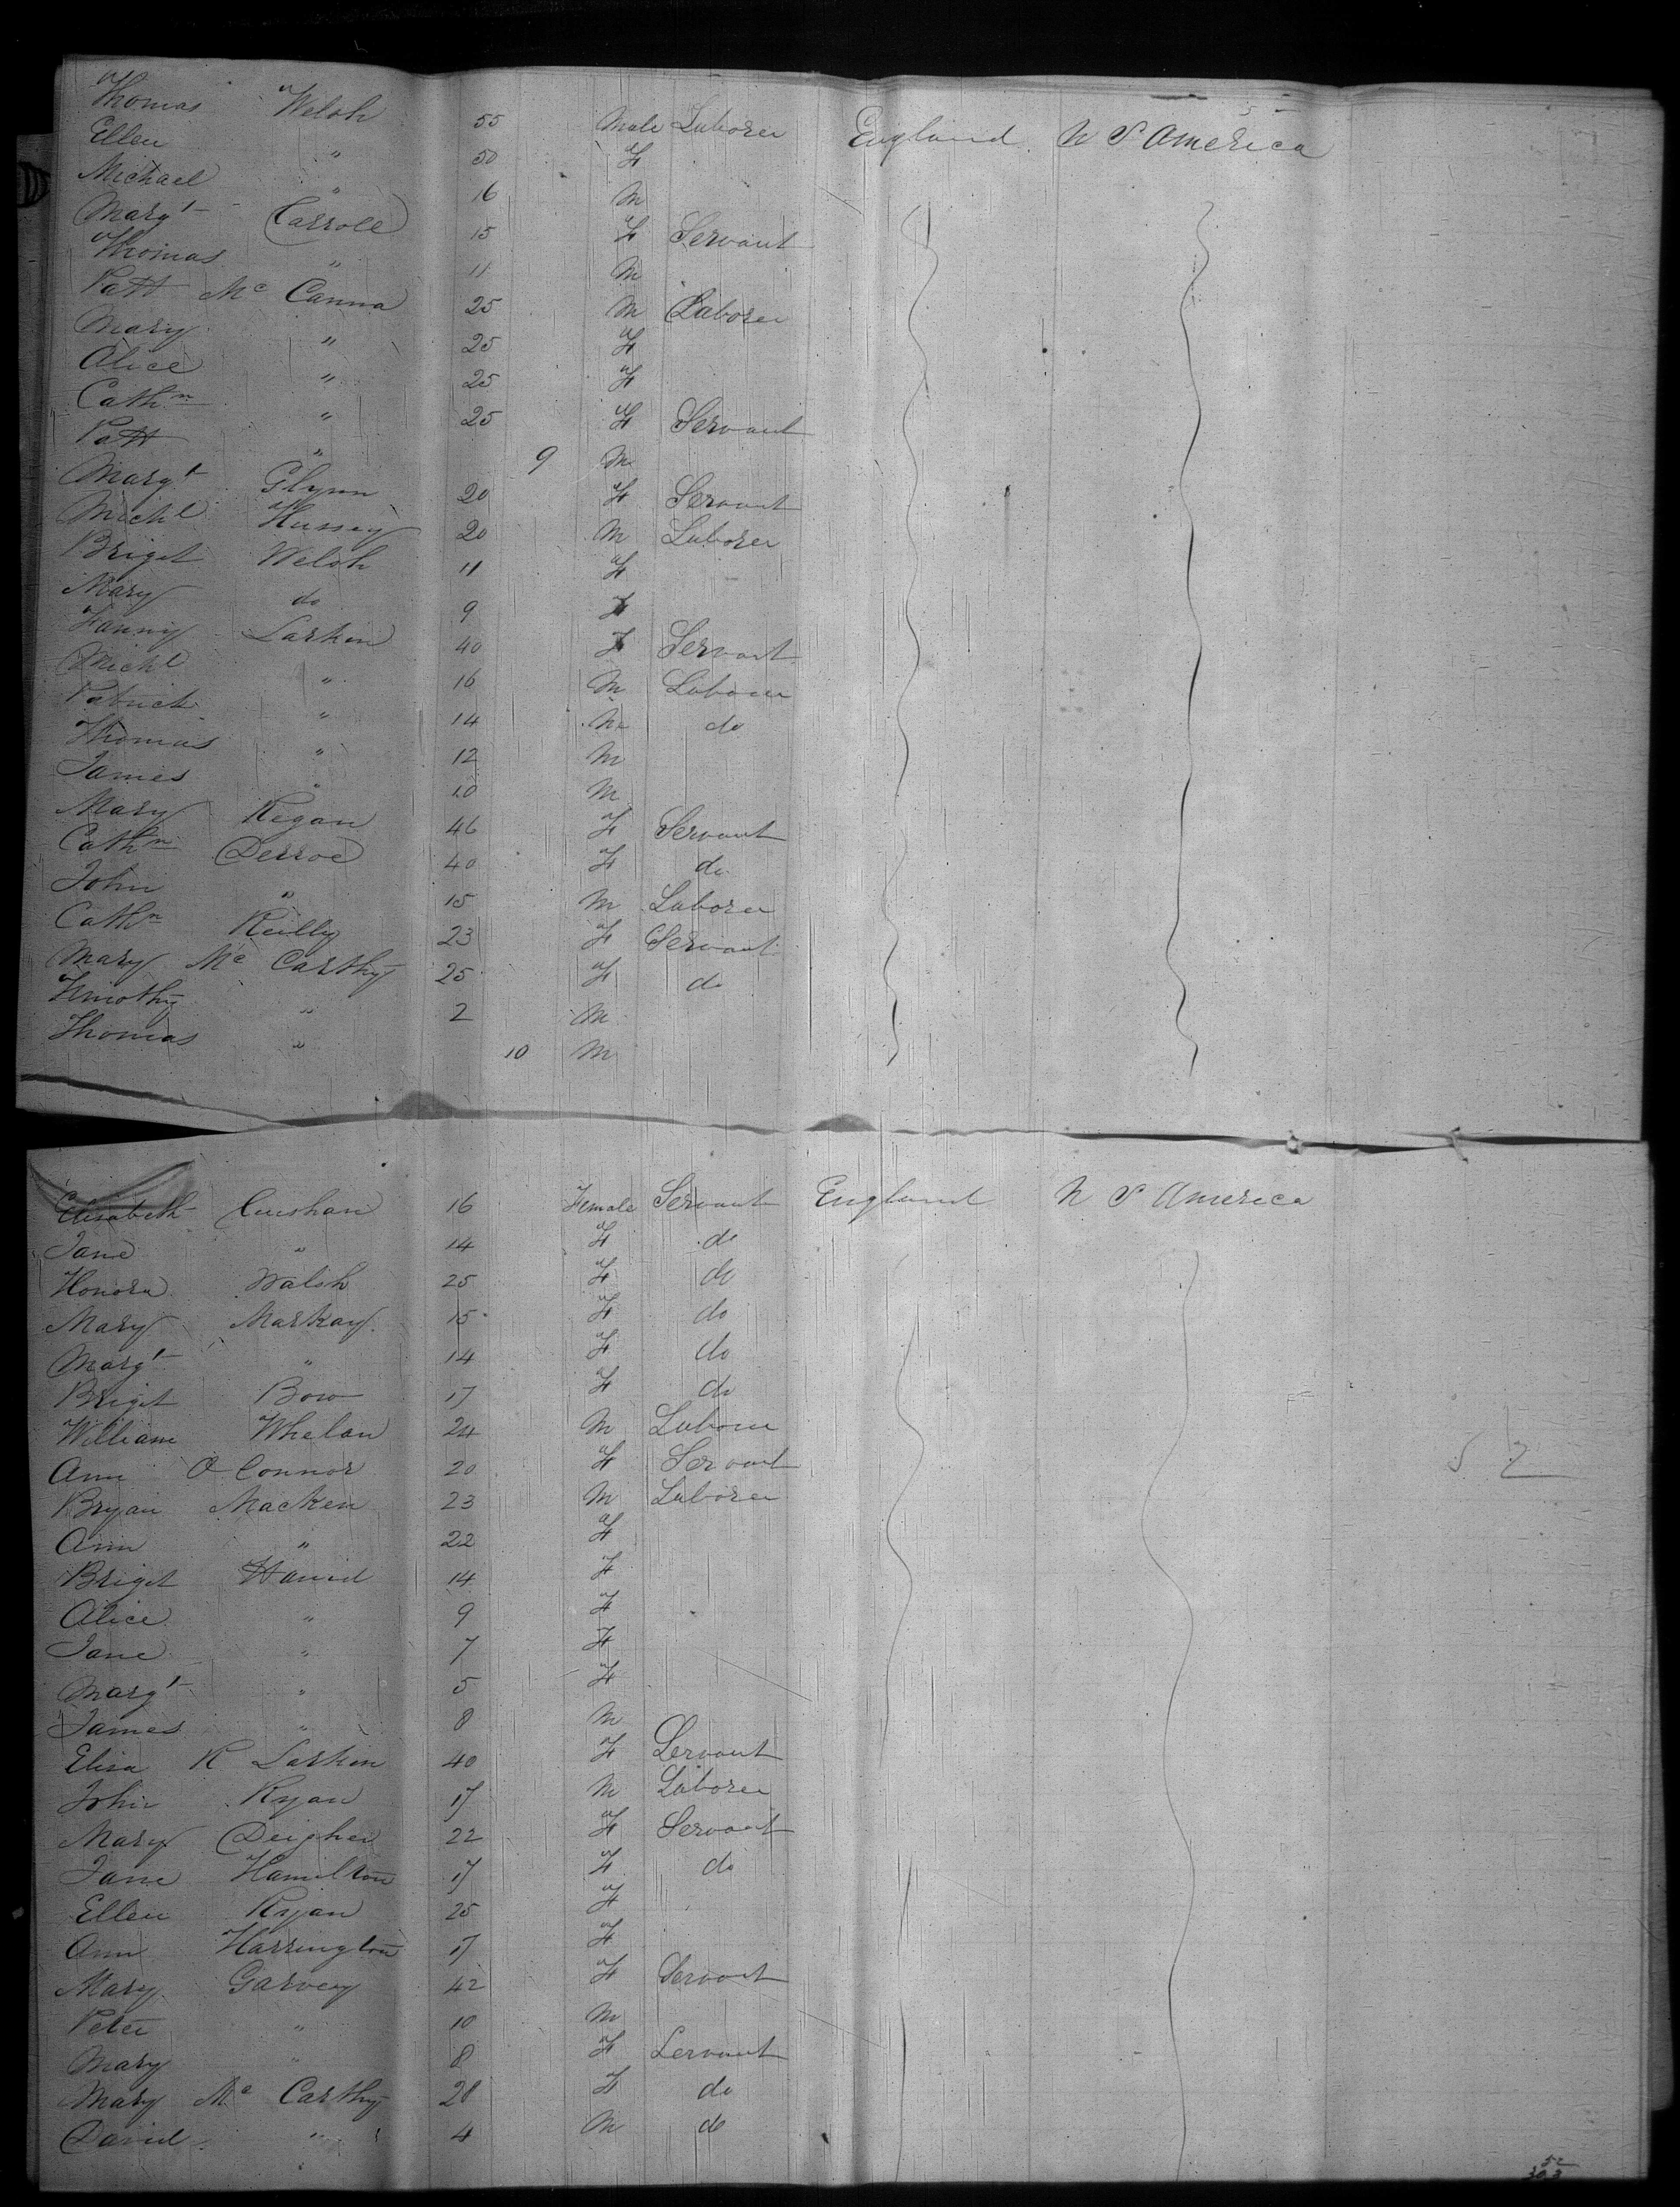 Thomas Welsh 55 Male Laborer England N S America
Ellen " 50 F
Michael " 16 M
Margt Carroll 15 F Servant
Thomas " 11 M
Patt Mc Canna 25 M Laborer
Mary " 25 F
Alice " 25 F
Cathn " 25 F Servant
Patt " 9 M
Margt Glynn 20 F Servant
Michl Hussey 20 M Laborer
Briget Welsh 11 F
Mary do 9 F
Fanny Larkin 40 F Servant
Michl " 16 M Laborer
Patrick " 14 M do
Thomas " 12 M
James " 10 M
Mary Regan 46 F Servant
Cathn Derroe 40 F do
John " 15 M Laborer
Cathn Reilly 23 F Servant
Mary Mc Carthy 25 F do
Timothy " 2 M
Thomas " 10 M
Elisabeth 16 Female Servant England N S America
Jane " 14 F do
Honora Walsh 25 F do
Mary Markay 15 F do
Margt " 14 F do
Briget Bow 17 F do
William Whelan 24 M Laborer
Ann O Connor 20 F Servant
Bryan Macken 23 M Laborer
Ann " 22 F
Briget 14 F
Alice " 9 F
Jane " 7 F
Margt " 5 F
James " 8 M
Elisa R Larkin 40 F Servant
John Ryan 17 M Laborer
Mary Deighen 22 F Servant
Jane Hamilton 17 F do
Ellen Ryan 25 F
Ann Harrington 17 F
Mary Garvey 42 F Servant
Peter " 10 M
Mary " 8 F Servant
Mary Mc Carthy 28 F do
David " 4 M do
52
52
303